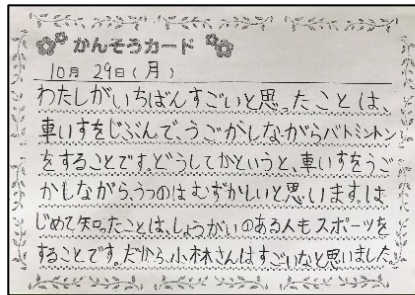 かんそうカード
10月 29日(月)
わたしがいちばんすごいと思ったことは、
車いすをじぶんで、うごかしながらバトミントン
をすることです。どうしてかというと、車いすをうご
かしながら、うつのはむずかしいと思います。は
じめて知ったことは、しょうがいのある人もスポーツを
することです。だから、小林さんはすごいなと思いました。